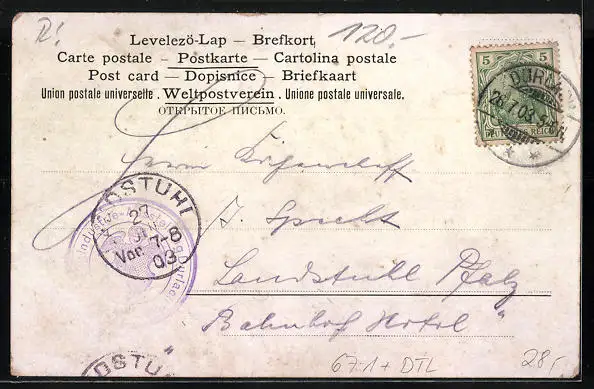 120.-
Levelezö-Lap — Brefkort
Carte postale — Postkarte — Cartolina postale
Post card — Dopisnice — Briefkaart
Union postale universelle. Weltpostverein. Unione postale universale.
ОТКРЫТОЕ ПИСЬМО.
5 5
DEUTSCHES REICH
DURLACH
26.7.03.
Herrn
J. Specht
Landstuhl Pfalz
"Bahnhof Hotel"
DSTUHL
27
JUL
Vor. 7-8
03
Durlach
DSTUH
67:1 + DTL
28,-